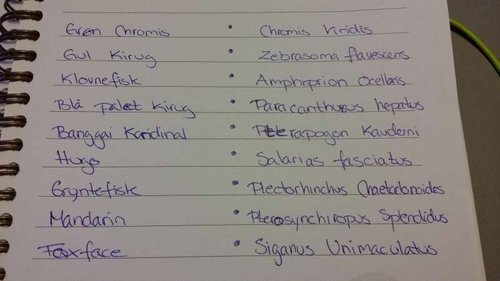 Grøn Chromis • Chromis Viridis
Gul Kirug • Zebrasoma flavescens
Klovnefisk • Amphiprion Ocellaris
Blå palet Kirug • Paracanthurus hepatus
Banggai Kardinal • Pterapogon Kauderni
Hugo • Salarias fasciatus
Gryntefisk • Plectorhinchus Chaetodonoides
Mandarin • Pterosynchiropus Splendidus
Fox-face • Siganus Unimaculatus